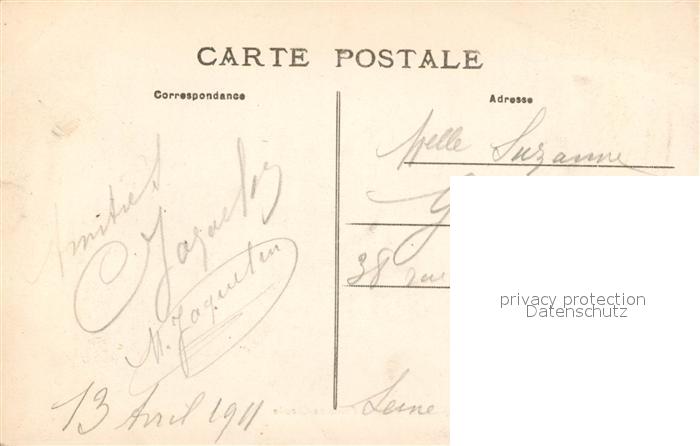 CARTE POSTALE
Correspondance
Amitiés
Jaquelin
M. Jaquelin
13 Avril 1911
Adresse
Melle Suzanne
G
38 rue
Seine
privacy protection
Datenschutz